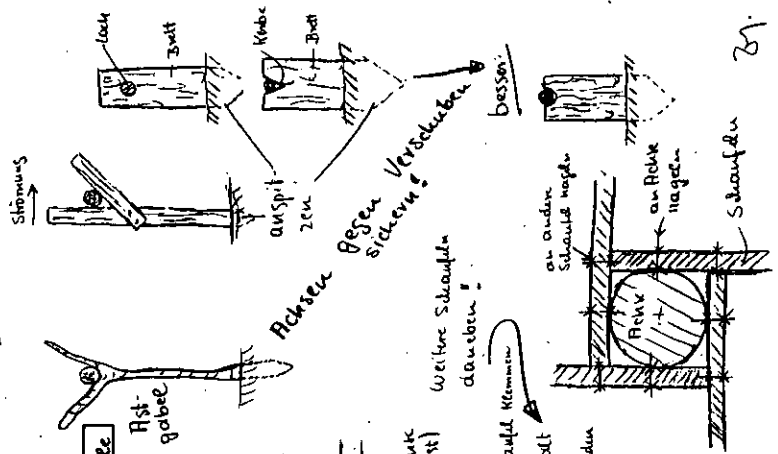 Strömung
Loch
Brett
Kerbe
Brett
Ast-
gabel
anspit-
zen
Achsen gegen Verschieben
sichern!
besser:
Weitere Schaufeln
daneben!
an andere
Schaufel nageln
an Achse
nageln
Achse
Schaufeln
klemmen